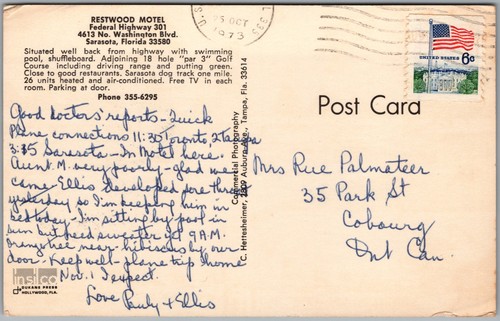 RESTWOOD MOTEL
Federal Highway 301
4613 No. Washington Blvd.
Sarasota, Florida 33580
Situated well back from highway with swimming
pool, shuffleboard. Adjoining 18 hole "par 3" Golf
Course including driving range and putting green.
Close to good restaurants. Sarasota dog track one mile.
26 units heated and air-conditioned. Free TV in each
room. Parking at door.
Phone 355-6295
Good doctors' reports - Quick
Plane connections 11:30 Toronto, Tampa
3:35 Sarasota - In Motel here.
Aunt M. very poorly - glad we
came. Ellis developed sore throat
yesterday so I'm keeping him in
bed today - I'm sitting by pool in
sun but need sweater at 9 A.M.
Orange tree near - hibiscus by our
door. Keep well - plane trip home
Nov. 1 I expect.
Love Pauly & Ellis
insilco
DUKANE PRESS
HOLLYWOOD, FLA.
Commercial Photography
C. Hertesheimer, 2809 Auburn Ave., Tampa, Fla. 33614
25 OCT
1973
UNITED STATES
6c
Post Card
Mrs Rue Palmateer
35 Park St
Cobourg
Ont Can.